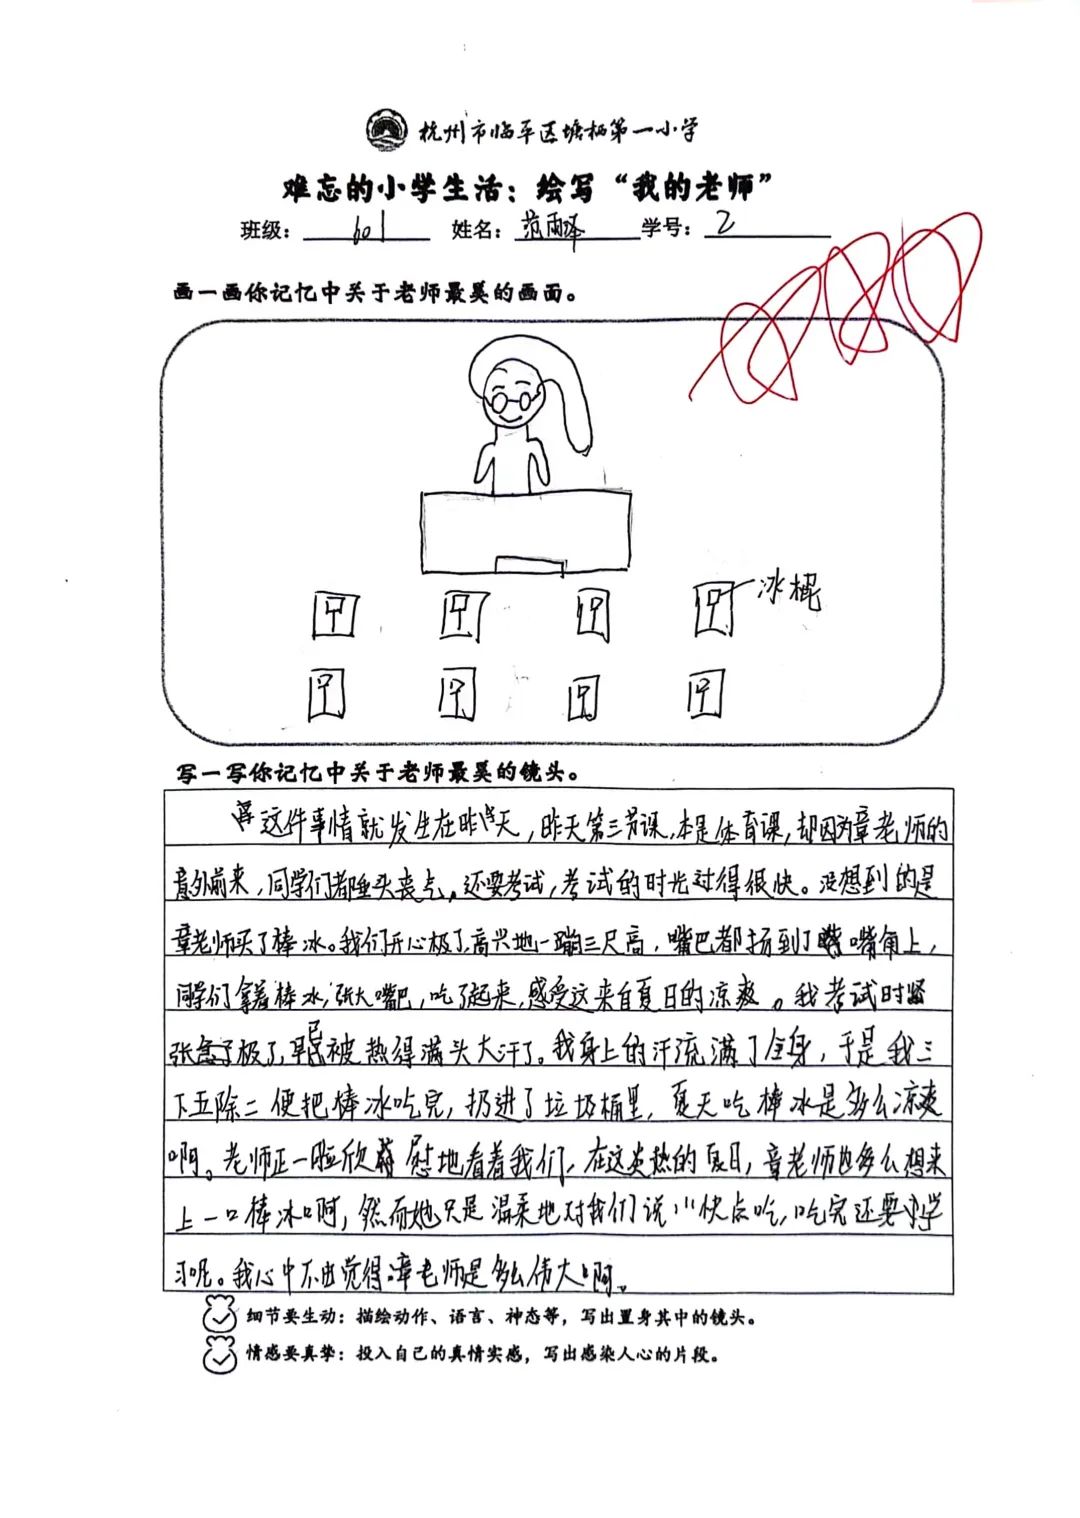 杭州市临平区塘栖第一小学
难忘的小学生活：绘写“我的老师”
班级：601 姓名：范雨泽 学号：2
画一画你记忆中关于老师最美的画面。
冰棍
写一写你记忆中关于老师最美的镜头。
这件事情就发生在昨天，昨天第三节课，本是体育课，却因为章老师的
意外前来，同学们都垂头丧气。还要考试，考试的时光过得很快。没想到的是
章老师买了棒冰。我们开心极了，高兴地一蹦三尺高，嘴巴都扬到了嘴角上，
同学们拿着棒冰，张大嘴巴，吃了起来，感受这来自夏日的凉爽。我考试时紧
张极了，早已被热得满头大汗了。我身上的汗流满了全身，于是我三
下五除二便把棒冰吃完，扔进了垃圾桶里，夏天吃棒冰是多么凉爽
啊。老师正一脸欣慰地看着我们，在这炎热的夏日，章老师也多么想来
上一口棒冰啊，然而她只是温柔地对我们说“快点吃，吃完还要学
习呢。我心中不由觉得章老师是多么伟大啊。
细节要生动：描绘动作、语言、神态等，写出置身其中的镜头。
情感要真挚：投入自己的真情实感，写出感染人心的片段。